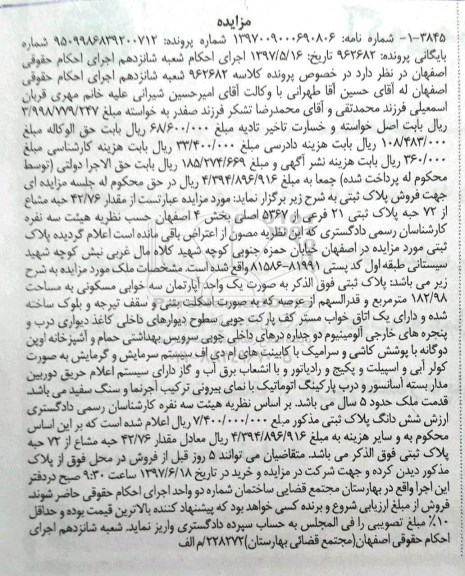 مزایده
۱-۳۸۴۵- شماره نامه: ۱۳۹۷۰۰۹۰۰۰۶۹۰۸۰۶ شماره پرونده: ۹۵۰۹۹۸۶۸۳۹۲۰۰۷۱۲ شماره
بایگانی پرونده: ۹۶۲۶۸۲ تاریخ: ۱۳۹۷/۵/۱۶ اجرای احکام شعبه شانزدهم اجرای احکام حقوقی
اصفهان در نظر دارد در خصوص پرونده کلاسه ۹۶۲۶۸۲ شعبه شانزدهم اجرای احکام حقوقی
اصفهان له آقای حسین آقا طهرانی با وکالت آقای امیرحسین شیرانی علیه خانم مهری قربان
اسمعیلی فرزند محمدتقی و آقای محمدرضا تشکر فرزند صفدر به خواسته مبلغ ۳/۹۹۸/۷۷۹/۲۴۷
ریال بابت اصل خواسته و خسارت تاخیر تادیه مبلغ ۶۸/۶۰۰/۰۰۰ ریال بابت حق الوکاله مبلغ
۱۰۸/۴۸۳/۰۰۰ ریال بابت هزینه دادرسی مبلغ ۳۳/۴۰۰/۰۰۰ ریال بابت هزینه کارشناسی مبلغ
۳۶۰/۰۰۰ ریال بابت هزینه نشر آگهی و مبلغ ۱۸۵/۲۷۴/۶۶۹ ریال بابت حق الاجرا دولتی (توسط
محکوم له پرداخت شده) جمعا به مبلغ ۴/۳۹۴/۸۹۶/۹۱۶ ریال در حق محکوم له جلسه مزایده ای
جهت فروش پلاک ثبتی به شرح زیر برگزار نماید: مورد مزایده عبارتست از مقدار ۴۲/۷۶ حبه مشاع
از ۷۲ حبه پلاک ثبتی ۲۱ فرعی از ۵۳۶۷ اصلی بخش ۴ اصفهان حسب نظریه هیئت سه نفره
کارشناسان رسمی دادگستری که این نظریه مصون از اعتراض باقی مانده است اعلام گردیده پلاک
ثبتی مورد مزایده در اصفهان خیابان حمزه جنوبی کوچه شهید کلاه مال غربی نبش کوچه شهید
سیستانی طبقه اول کد پستی ۸۱۹۹۱-۸۱۵۸۶ واقع شده است. مشخصات ملک مورد مزایده به شرح
زیر می باشد: پلاک ثبتی فوق الذکر به صورت یک واحد آپارتمان سه خوابی مسکونی به مساحت
۱۸۲/۹۸ مترمربع و قدرالسهم از عرصه که به صورت اسکلت بتنی و سقف تیرچه و بلوک ساخته
شده و دارای یک اتاق خواب مستر کف پارکت چوبی سطوح دیوارهای داخلی کاغذ دیواری درب و
پنجره های خارجی آلومینیوم دو جداره درهای داخلی چوبی سرویس بهداشتی حمام و آشپزخانه اوپن
دوگانه با پوشش کاشی و سرامیک با کابینت های ام دی اف سیستم سرمایش و گرمایش به صورت
کولر آبی و اسپیلت و پکیج و رادیاتور و با انشعاب برق آب و گاز دارای سیستم اعلام حریق دوربین
مدار بسته آسانسور و درب پارکینگ اتوماتیک با نمای بیرونی ترکیب آجرنما و سنگ سفید می باشد.
قدمت ملک حدود ۵ سال می باشد. بر اساس نظریه هیئت سه نفره کارشناسان رسمی دادگستری
ارزش شش دانگ پلاک ثبتی مذکور مبلغ ۷/۴۰۰/۰۰۰/۰۰۰ ریال اعلام شده است که بر این اساس
محکوم به و سایر هزینه به مبلغ ۴/۳۹۴/۸۹۶/۹۱۶ ریال معادل مقدار ۴۲/۷۶ حبه مشاع از ۷۲ حبه
پلاک ثبتی فوق الذکر می باشد. متقاضیان می توانند ۵ روز قبل از فروش در محل فوق از پلاک
مذکور دیدن کرده و جهت شرکت در مزایده و خرید در تاریخ ۱۳۹۷/۶/۱۸ ساعت ۹:۳۰ صبح دردفتر
این اجرا واقع در بهارستان مجتمع قضایی ساختمان شماره دو واحد اجرای احکام حقوقی حاضر شوند.
فروش از مبلغ ارزیابی شروع و برنده کسی خواهد بود که پیشنهاد کننده بالاترین قیمت بوده و حداقل
۱۰٪ مبلغ تصویبی را فی المجلس به حساب سپرده دادگستری واریز نماید. شعبه شانزدهم اجرای
احکام حقوقی اصفهان(مجتمع قضائی بهارستان)۲۲۸۲۷۲/م الف